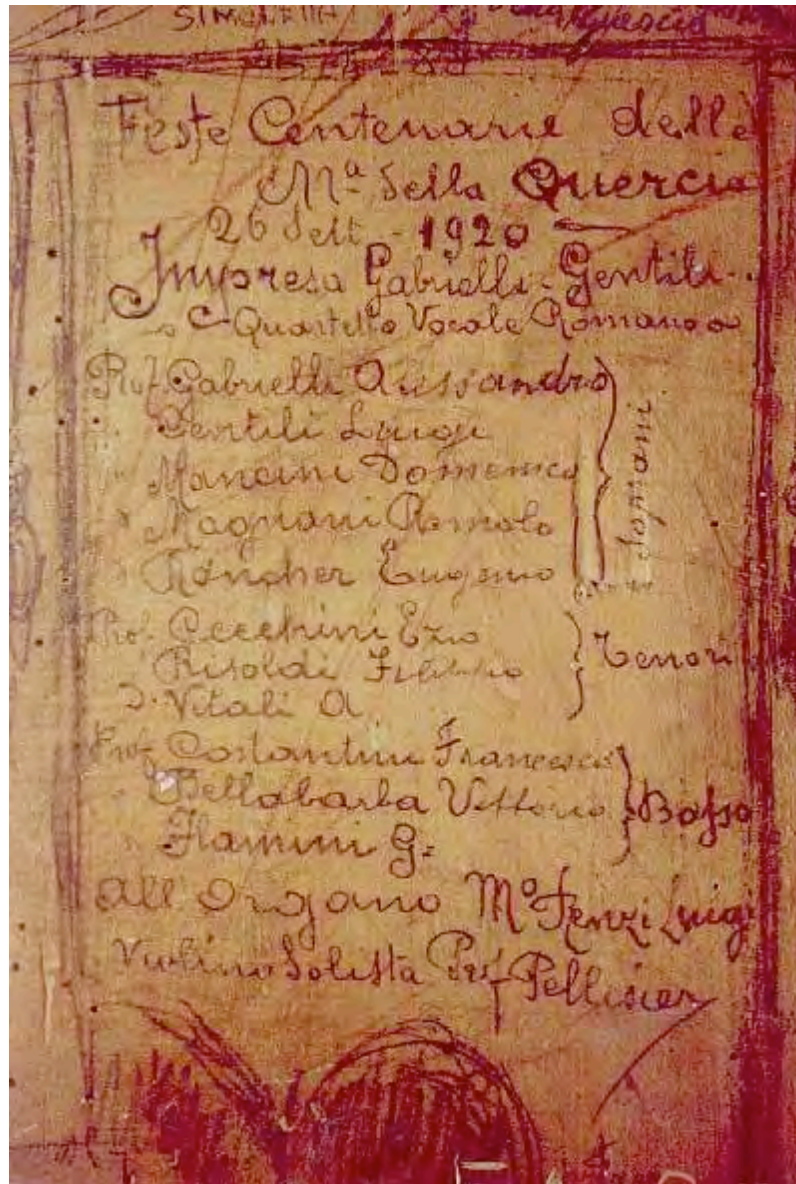 SIMONETTA
Feste Centenarie della
Mª della Quercia
26 Sett. - 1920
Impresa Gabrielli - Gentili -
e Quartetto Vocale Romano
Prof. Gabrielli Alessandro
" Gentili Luigi
" Mancini Domenico
" Magnani Romolo
" Töncher Eugenio
Soprani
Prof. Cecchini Ezio
Risoldi
D. Vitali A.
Tenori
Prof. Costantini Francesco
" Bellabarba Vittorio
" Flamini G.
Basso
All'Organo Mº Fenzi Luigi
Violino Solista Prof Pellicier